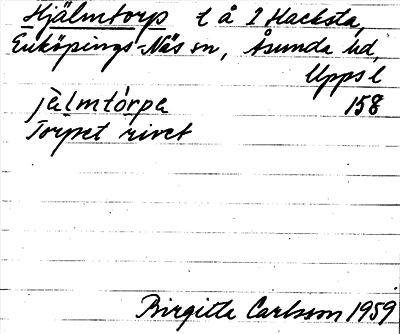 Hjälmtorp t å 2 Hacksta,
Enköpings-Näs sn, Åsunda hd,
Upps l
jä̀lmtórpe 158
Torpet rivet
Birgitta Carlsson 1959